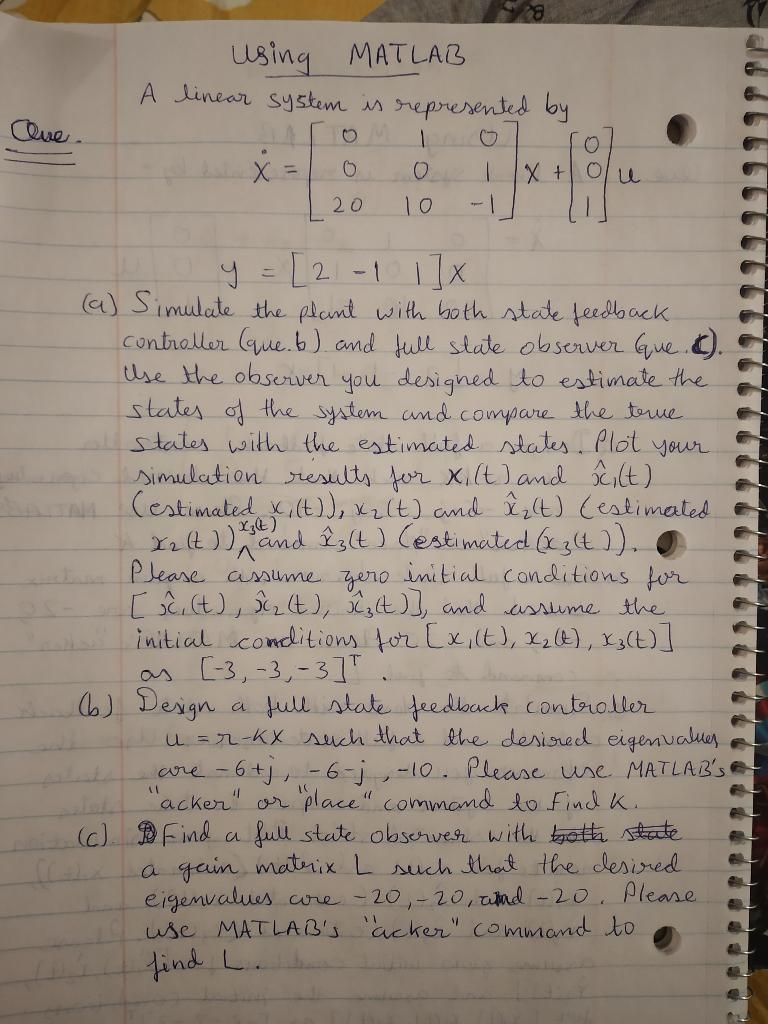 Using MATLAB
A linear system is represented by
Que.
ẋ = [0 1 0; 0 0 1; 20 10 -1] x + [0; 0; 1] u
y = [2 -1 1] x
(a) Simulate the plant with both state feedback
controller (que.b) and full state observer (que.c).
Use the observer you designed to estimate the
states of the system and compare the true
states with the estimated states. Plot your
simulation results for x₁(t) and x̂₁(t)
(estimated x₁(t)), x₂(t) and x̂₂(t) (estimated
x₂(t)) x₃(t) and x̂₃(t) (estimated (x₃(t)).
Please assume zero initial conditions for
[x̂₁(t), x̂₂(t), x̂₃(t)], and assume the
initial conditions for [x₁(t), x₂(t), x₃(t)]
as [-3, -3, -3]ᵀ.
(b) Design a full state feedback controller
u = r-Kx such that the desired eigenvalues
are -6+j, -6-j, -10. Please use MATLAB's
"acker" or "place" command to find K.
(c) Find a full state observer with both state
a gain matrix L such that the desired
eigenvalues are -20, -20, and -20. Please
use MATLAB's "acker" command to
find L.